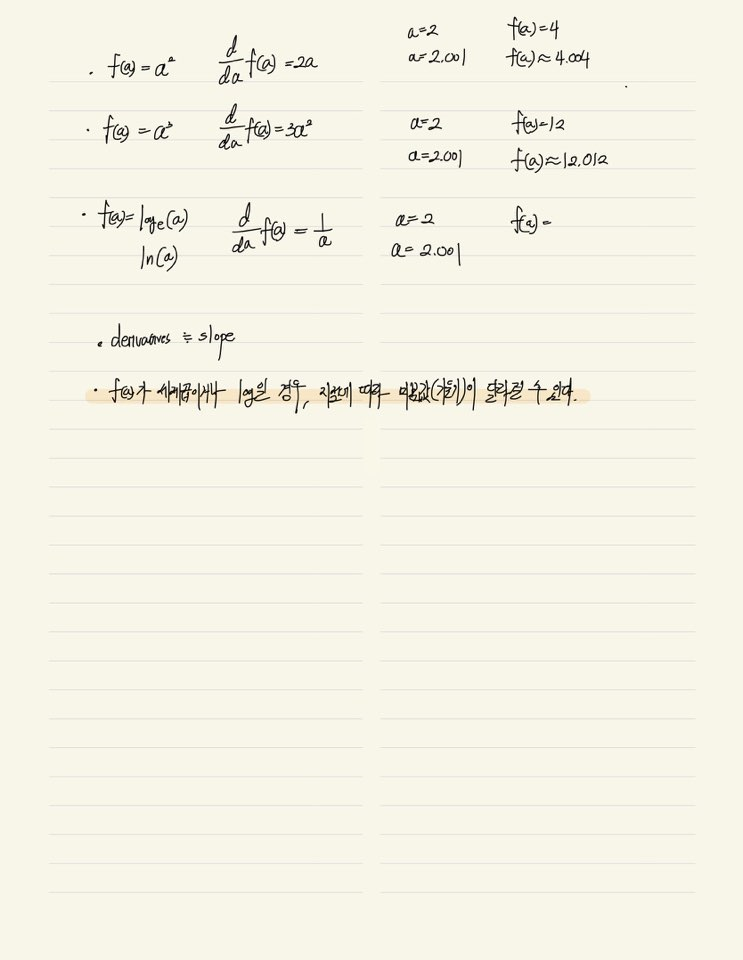 · f(a) = a² d/da f(a) = 2a a=2 f(a)=4
a=2.001 f(a)≈4.004
· f(a) = a³ d/da f(a) = 3a² a=2 f(a)=12
a=2.001 f(a)≈12.012
· f(a) = logₑ(a) d/da f(a) = 1/a a=2 f(a) =
ln(a) a=2.001
· derivatives ≒ slope
· f(a)가 세제곱이거나 log일 경우, 지점에 따라 미분값(기울기)이 달라질 수 있다.